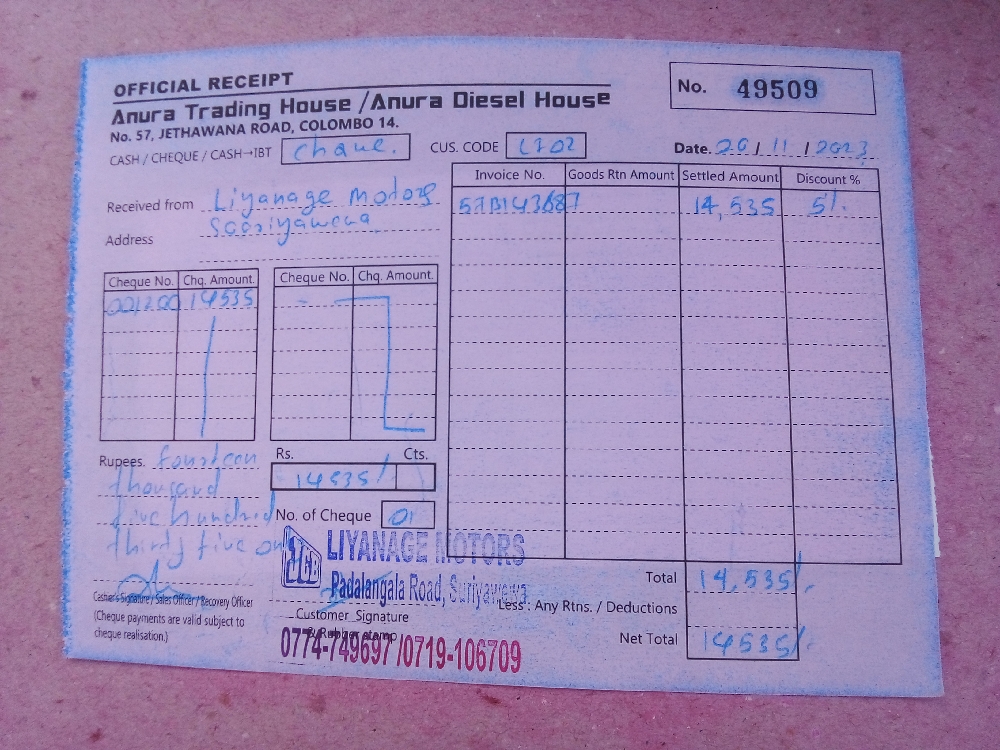 OFFICIAL RECEIPT
Anura Trading House / Anura Diesel House
No. 57, JETHAWANA ROAD, COLOMBO 14.
No. 49509
CASH / CHEQUE / CASH→IBT chaue.
CUS. CODE L702
Date. 20 / 11 / 2023
Received from Liyanage Motors
Address Sooriyawewa
Invoice No. Goods Rtn Amount Settled Amount Discount %
57B143687 14,535 5%.
Cheque No. Chq. Amount. Cheque No. Chq. Amount.
001200 14535
Rupees. fourteen
thousand
five hundred
thirty five on
Rs. Cts.
14535/
No. of Cheque 01
LIYANAGE MOTORS
Padalangala Road, Suriyawewa
Total 14,535/.
Less : Any Rtns. / Deductions
Net Total 14535/.
Cashier's Signature / Sales Officer / Recovery Officer
(Cheque payments are valid subject to
cheque realisation.)
Customer Signature
& Rubber stamp
0774-749697 /0719-106709